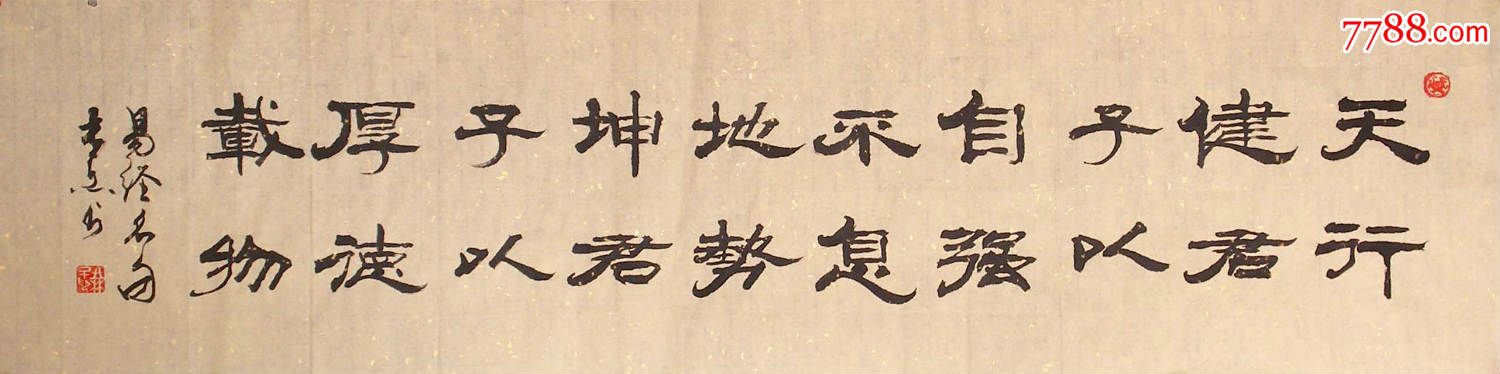 7788.com
天行
健君
子以
自强
不息
地势
坤君
子以
厚德
載物
易经名句
书